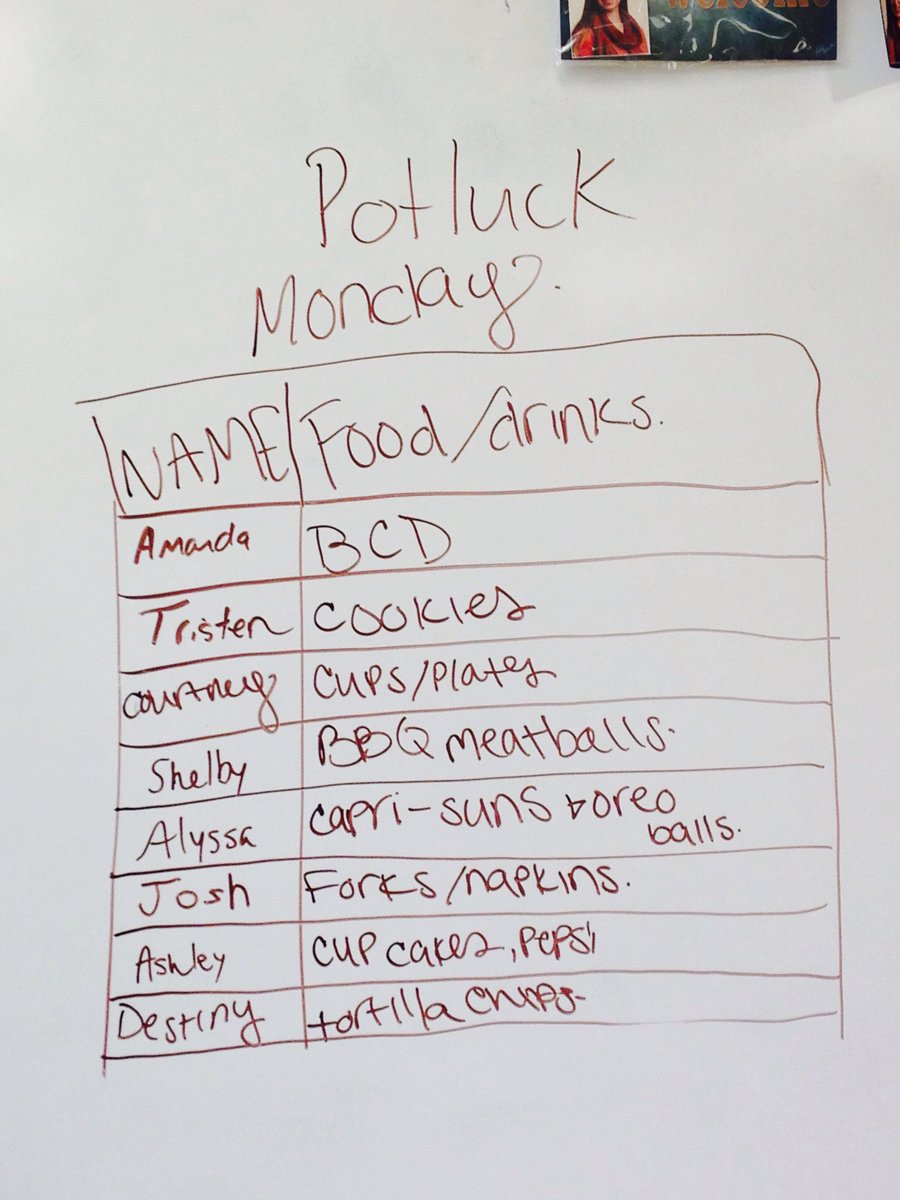 welcome
Potluck
Monday.
NAME Food/drinks.
Amanda BCD
Tristen cookies
Courtney cups/plates
Shelby BBQ meatballs.
Alyssa capri-suns + oreo
balls.
Josh Forks/napkins.
Ashley cup cakes, pepsi
Destiny tortilla chips.